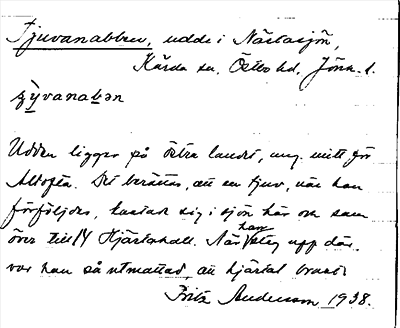 Tjuvanabben, udde i Nästasjön,
Kärda sn, Östbo hd, Jönk. l.
Udden ligger på östra landet, ung. mitt för
Det berättas, att en tjuv, när han
förföljdes, kastade sig i sjön här och sam
över till Hjärtehall. När han steg upp där
var han så utmattad, att hjärtat brast.
Fritz Andersson 1938.